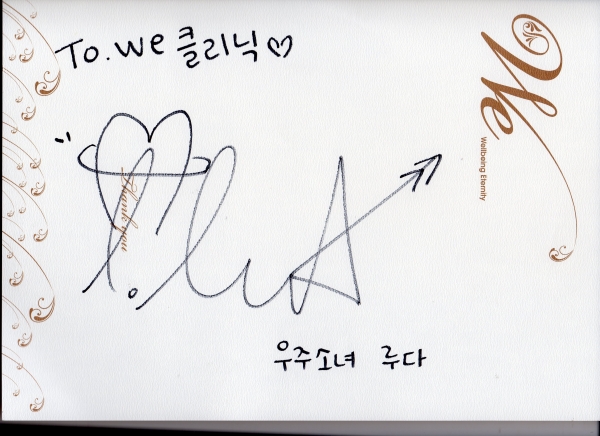 To. We 클리닉♡
We
Wellbeing Eternity
Thank you
우주소녀 루다